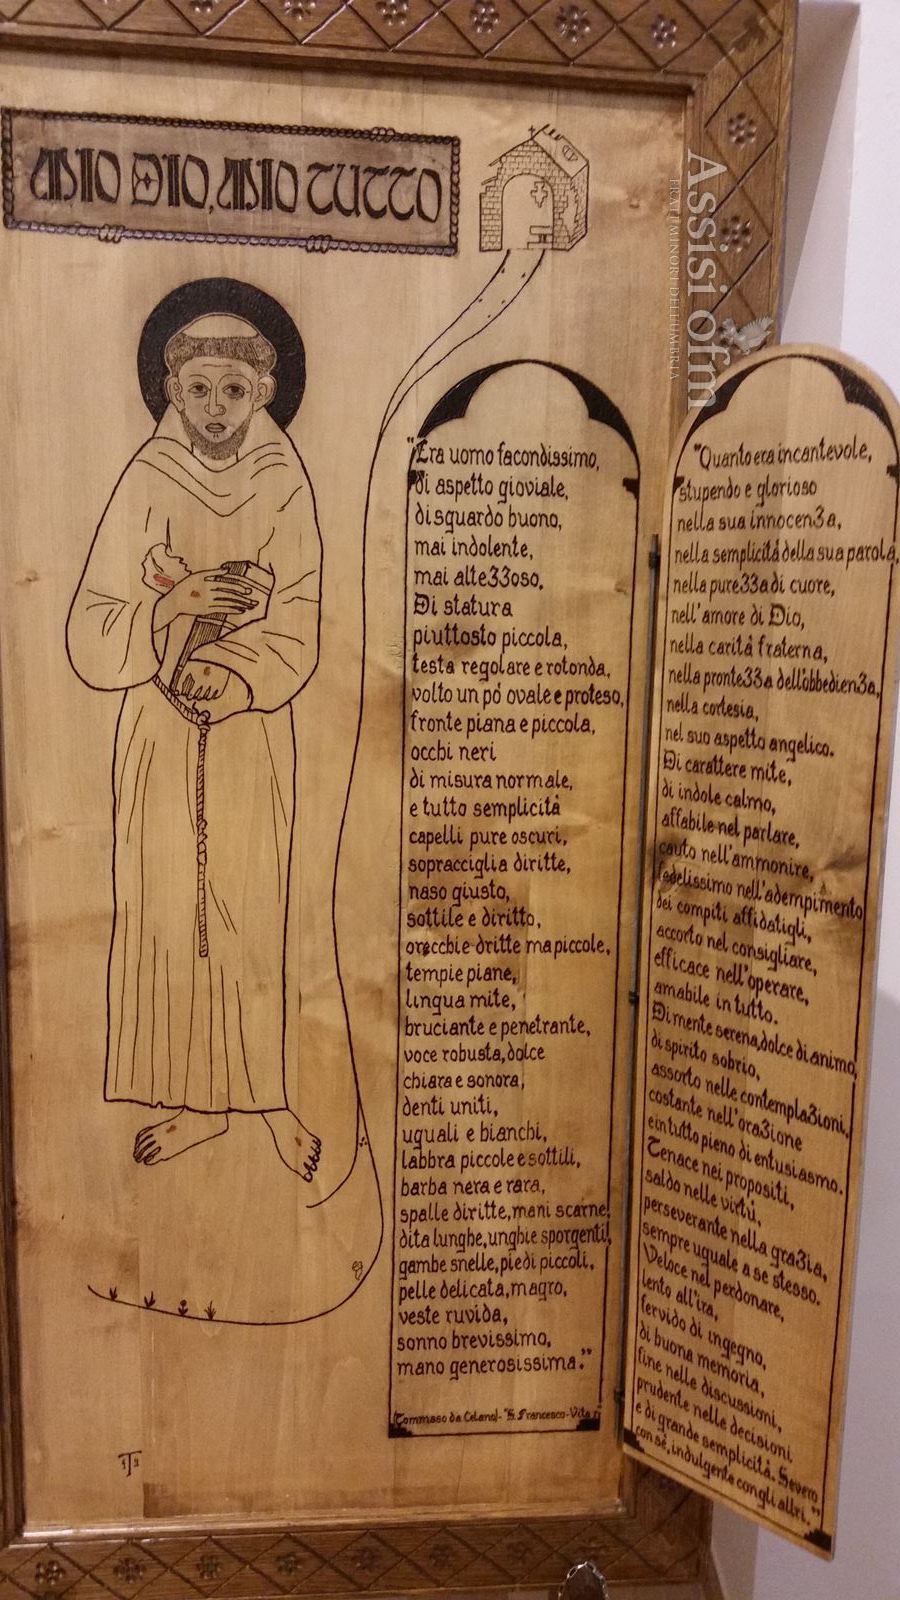 MIO DIO, MIO TUTTO
"Era uomo facondissimo,
di aspetto gioviale,
di sguardo buono,
mai indolente,
mai alte33oso.
Di statura
piuttosto piccola,
testa regolare e rotonda,
volto un pó ovale e proteso,
fronte piana e piccola,
occhi neri
di misura normale,
e tutto semplicità
capelli pure oscuri,
sopracciglia diritte,
naso giusto,
sottile e diritto,
orecchie dritte ma piccole,
tempie piane,
lingua mite,
bruciante e penetrante,
voce robusta, dolce
chiara e sonora,
denti uniti,
uguali e bianchi,
labbra piccole e sottili,
barba nera e rara,
spalle diritte, mani scarne,
dita lunghe, unghie sporgenti,
gambe snelle, piedi piccoli,
pelle delicata, magro,
veste ruvida,
sonno brevissimo,
mano generosissima."
Tommaso da Celano - "S. Francesco - Vita
"Quanto era incantevole,
stupendo e glorioso
nella sua innocen3a,
nella semplicità della sua parola,
nella pure33a di cuore,
nell'amore di Dio,
nella carità fraterna,
nella pronte33a dell'obbedien3a,
nella cortesia,
nel suo aspetto angelico.
Di carattere mite,
di indole calmo,
affabile nel parlare,
cauto nell'ammonire,
fedelissimo nell'adempimento
dei compiti affidatigli,
accorto nel consigliare,
efficace nell'operare,
amabile in tutto.
Di mente serena, dolce di animo,
di spirito sobrio,
assorto nelle contempla3ioni,
costante nell'ora3ione
e in tutto pieno di entusiasmo.
Tenace nei propositi,
saldo nelle virtù,
perseverante nella gra3ia,
sempre uguale a se stesso.
Veloce nel perdonare,
lento all'ira,
fervido di ingegno,
di buona memoria,
fine nelle discussioni,
prudente nelle decisioni
e di grande semplicità. Severo
con sè, indulgente con gli altri."
Assisi ofm
FRATI MINORI DELL'UMBRIA